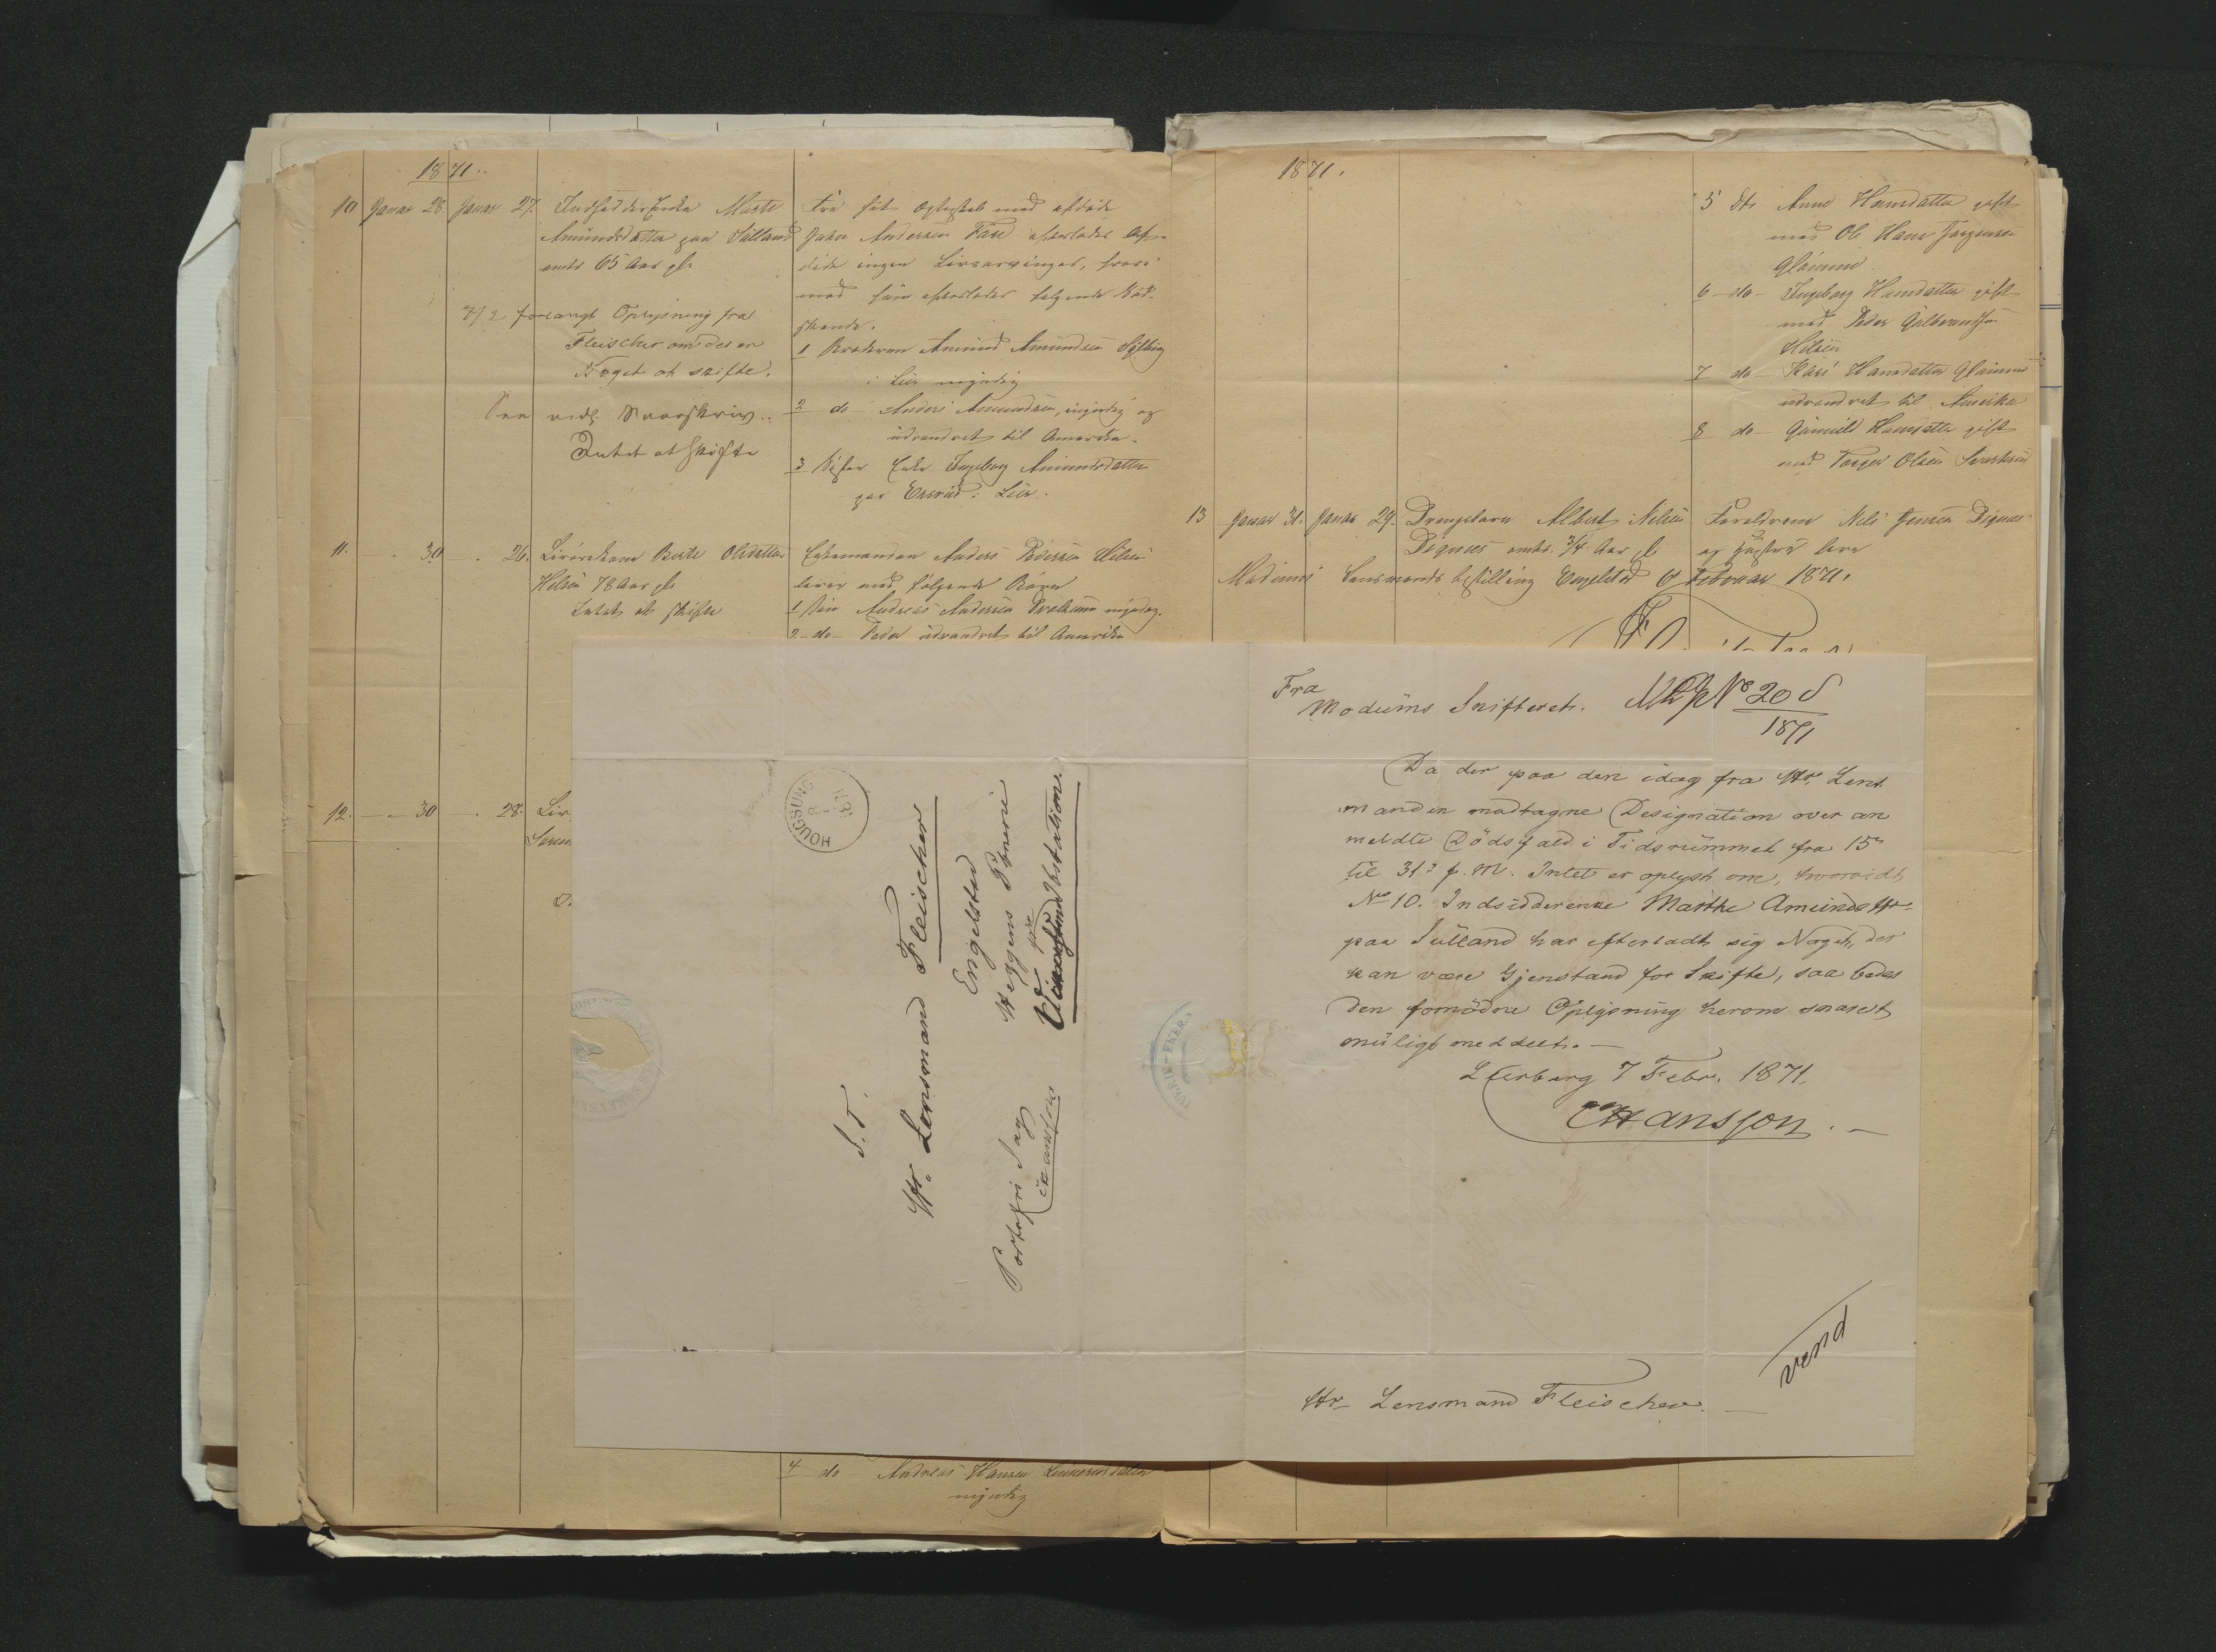 1871.
10 Januar 28. Januar 27. Indsidderenke Marte
Amundsdatter paa Sølland
endr 65 Aar gl.
7/2 forlangt Oplysning fra
Fleischer om der er
Noget at skifte.
See vedl. Paaskriv..
Intet at skifte
Fra sit Ægteskab med afdøde
John Andersen efterlader Af-
døde ingen Livsarvinger, hvori-
mod hun efterlader følgende Sød-
skende.
1 Broderen Amund Amundsen
i Lier myndig
2 do Anders Amundsen, myndig og
udvandret til Amerika.
3 Søster Enke Ingeborg Amundsdatter
paa i Lier.
11. - 30 - 26. Livørekone Berte Olsdatter
Hilsen 78 Aar gl.
Intet at skifte
Enkemanden Anders Pedersen Hilsen
lever med følgende Børn
1 Søn Andreas Andersen myndig.
2 do Peder udvandret til Amerika
12. - 30 - 28. Liv
4 do Andreas Hansen
myndig
1871.
5 Dtr Anne Hansdatter gift
med Ole Hans Jørgensen
Glainne
6 do Ingeborg Hansdatter gift
med Peder Gulbrandsen
Hilsen
7 do Kari Hansdatter Glainne
udvandret til Amerika
8 do Gunild Hansdatter gift
med Torger Olsen
13 Januar 31. Januar 29. Drengebarn Albert Nilsen
Dignæs endr. 3/4 Aar gl.
Forældrene Nils Jensen Dignæs
og Hustru leve
Modums Lensmandsbestilling Engelstad 6 Februar 1871.
Fra
Modums Skifteret. No 20 S
1871
Da der paa den idag fra Hr. Lens
manden modtagne Designation over an
meldte Dödsfald i Tidsrümmet fra 15de
til 31te f. M. Intet er oplyst om, hvorvidt
No 10. Indsidderenke Marthe Amündsdtr.
paa Sülland har efterladt sig Noget, der
kan være Gjenstand for Skifte, saa bedes
den fornödne Oplysning herom snarest
müligt meddelt. —
Leerberg 7 Febr. 1871.
Hansson. —
vend
Hr. Lensmand Fleischer. —
HOUGSUND
8
1871
S. T.
Hr. Lensmand Fleischer
Engelstad
Heggens Præsteri
pr
Vikersunds Station.
Portofri Sag
Hansson
EKER.